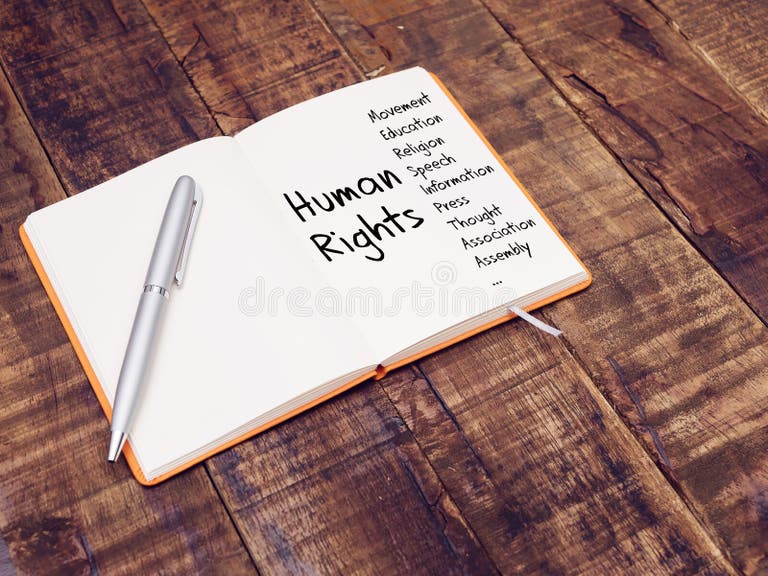 Human
Rights
Movement
Education
Religion
Speech
Information
Press
Thought
Association
Assembly
...
dreamstime